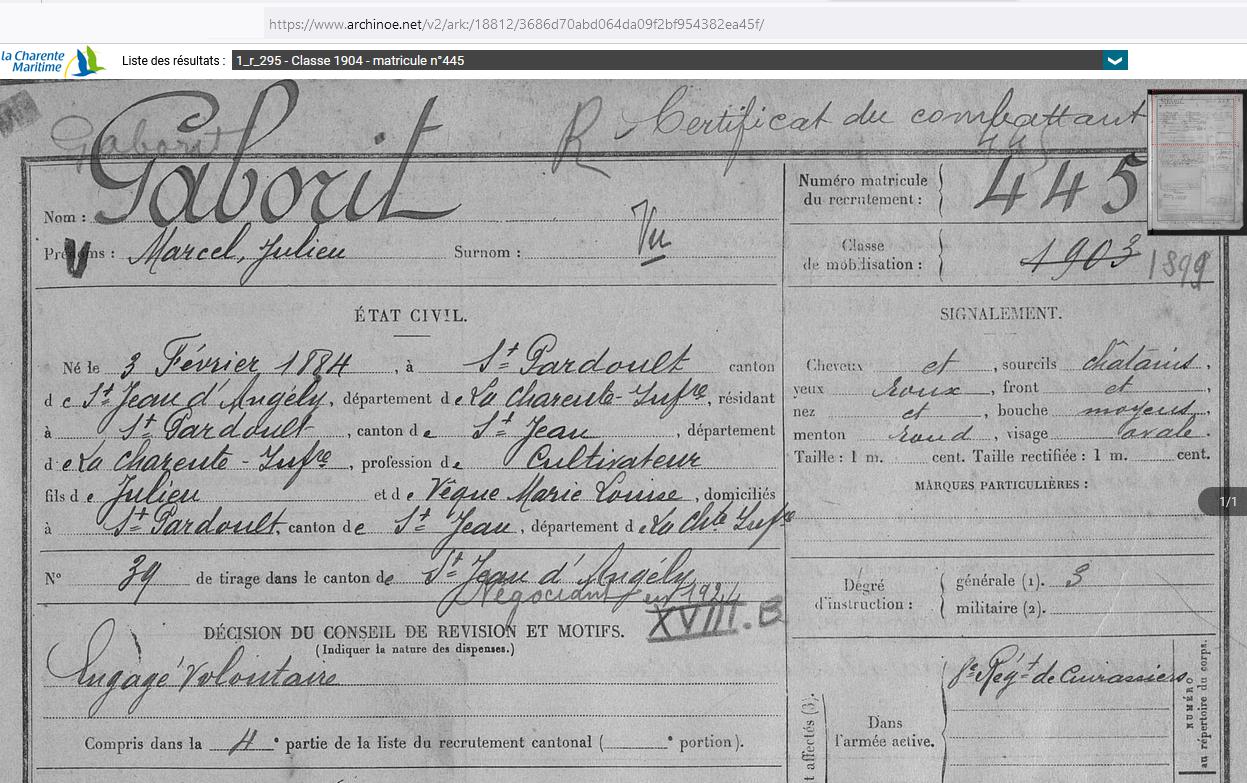 https://www.archinoe.net/v2/ark:/18812/3686d70abd064da09f2bf954382ea45f/
la Charente
Maritime
Liste des résultats :
1_r_295 - Classe 1904 - matricule n°445
Gaborit
R Certificat du combattant
445
Nom : Gaborit
Prénoms : Marcel, Julien Surnom :
V
Vu
Numéro matricule
du recrutement : 445
Classe
de mobilisation : 1903 1899
ÉTAT CIVIL.
Né le 3 Février 1884, à St Pardoult canton
de St Jean d'Angély, département de La Charente-Infre, résidant
à St Pardoult, canton de St Jean, département
de La Charente-Infre, profession de Cultivateur
fils de Julien et de Vêque Marie Louise, domiciliés
à St Pardoult, canton de St Jean, département de La Chte Infre
N° 39 de tirage dans le canton de St Jean d'Angély
Négociant en 1924
XVIII.B
DÉCISION DU CONSEIL DE REVISION ET MOTIFS.
(Indiquer la nature des dispenses.)
Engagé Volontaire
Compris dans la 4e partie de la liste du recrutement cantonal ( e portion).
SIGNALEMENT.
Cheveux et, sourcils châtains,
yeux roux, front et
nez et, bouche moyens,
menton rond, visage ovale.
Taille : 1 m. cent. Taille rectifiée : 1 m. cent.
MARQUES PARTICULIÈRES :
1/1
Degré
d'instruction :
générale (1). 3
militaire (2).
Dans
l'armée active.
8e Régt de Cuirassiers
t affectés (3).
NUMÉRO
au répertoire du corps.